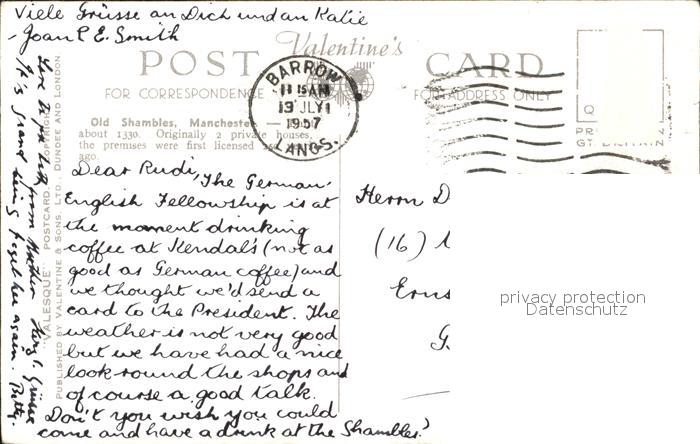 Viele Grüsse an Dich und an Katie
- Joan P. E. Smith
Valentine's
POST CARD
FOR CORRESPONDENCE
FOR ADDRESS ONLY
BARROW
11 15 AM
19 JLY
1957
LANCS.
Old Shambles, Manchester. —
about 1330. Originally 2 private houses,
the premises were first licensed
ago.
Dear Rudi, The German-
English Fellowship is at
the moment drinking
coffee at Kendal's (not as
good as German coffee) and
we thought we'd send a
card to the President. The
weather is not very good
but we have had a nice
look round the shops and
of course a good talk.
Don't you wish you could
come and have a drink at the Shambles?
Herrn D
(16)
Erns
G
privacy protection
Datenschutz
"VALESQUE" POSTCARD
PUBLISHED BY VALENTINE & SONS, LTD., DUNDEE AND LONDON
Love to you both from
It is grand being together again.